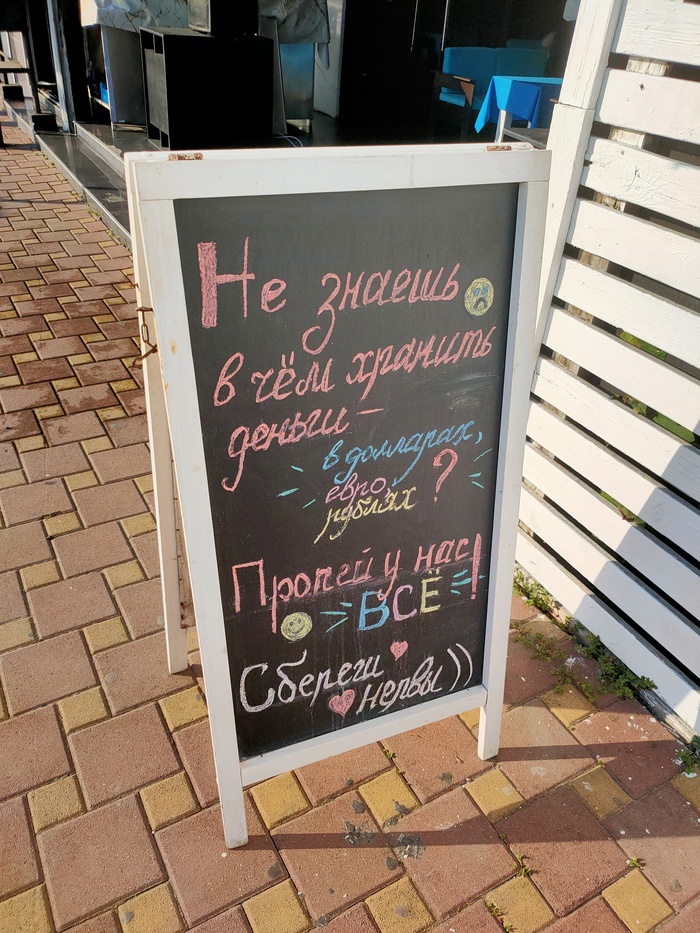 Не знаешь
в чём хранить
деньги –
в долларах,
евро,
рублях ?
Пропей у нас!
ВСЁ
Сбереги
нервы))